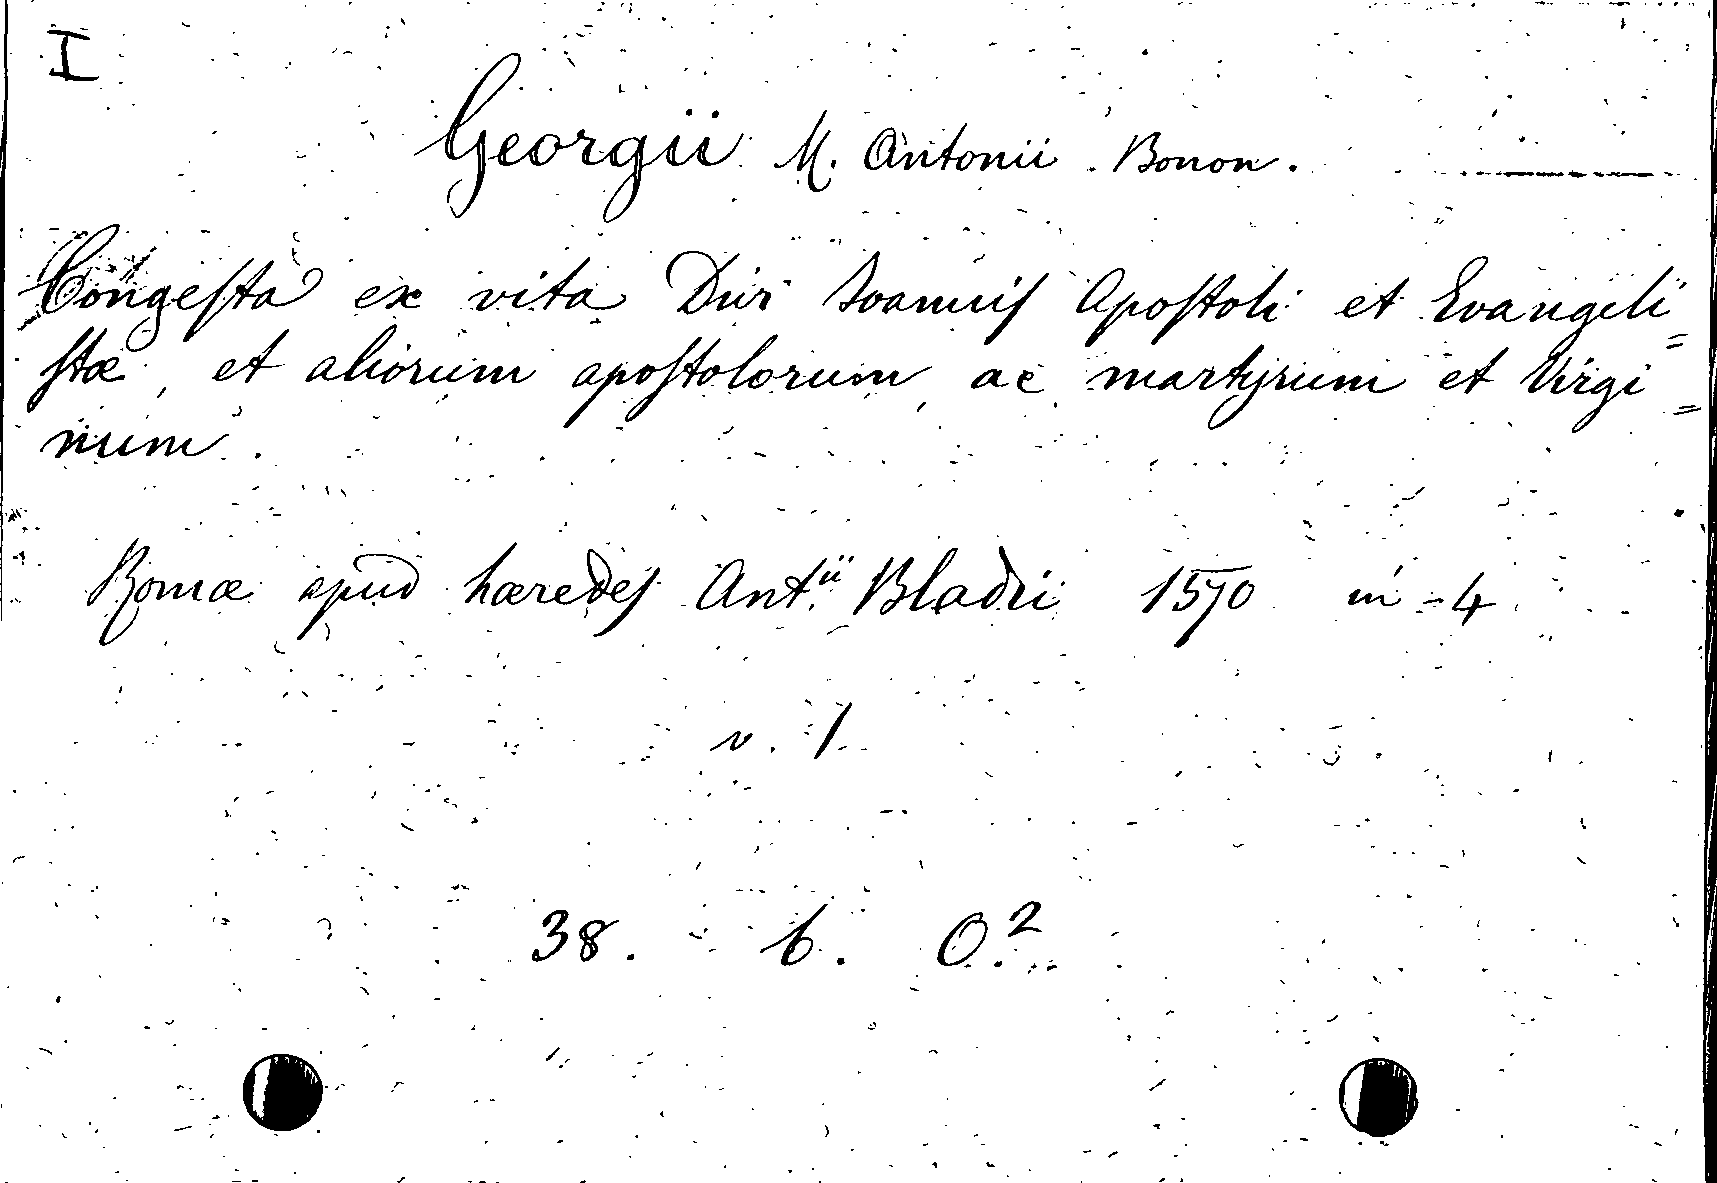 I
Georgii M. Antonii Bonon.
Congesta ex vita Divi Ioannis Apostoli et Evangeli=
stæ, et aliorum apostolorum, ac martyrum et Virgi=
num.
Romæ apud hæredes Ant.ii Bladii 1570 in-4
v. 1
38. b. O.2